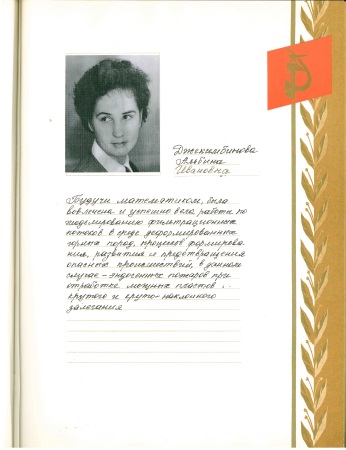 Джекшмбинова
Альбина
Ивановна
Будучи математиком, была
вовлечена и успешно вела работы по
моделированию фильтрационных
потоков в среде деформированных
горных пород, процессов формирова-
ния, развития и предотвращения
опасных происшествий, в данном
случае - эндогенных пожаров при
отработке мощных пластов
крутого и круто-наклонного
залегания